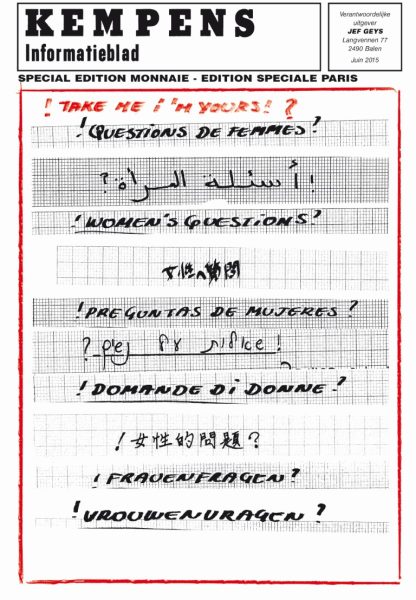 KEMPENS
Informatieblad
Verantwoordelijke
uitgever
JEF GEYS
Langvennen 77
2490 Balen
Juin 2015
SPECIAL EDITION MONNAIE - EDITION SPECIALE PARIS
! TAKE ME I'M YOURS! ?
! QUESTIONS DE FEMMES ?
!أسئلة المرأة?
! WOMEN'S QUESTIONS ?
女性への質問
! PREGUNTAS DE MUJERES ?
! שאלות של נשים ?
! DOMANDE DI DONNE ?
! 女性的問題 ?
! FRAUENFRAGEN ?
! VROUWENVRAGEN ?